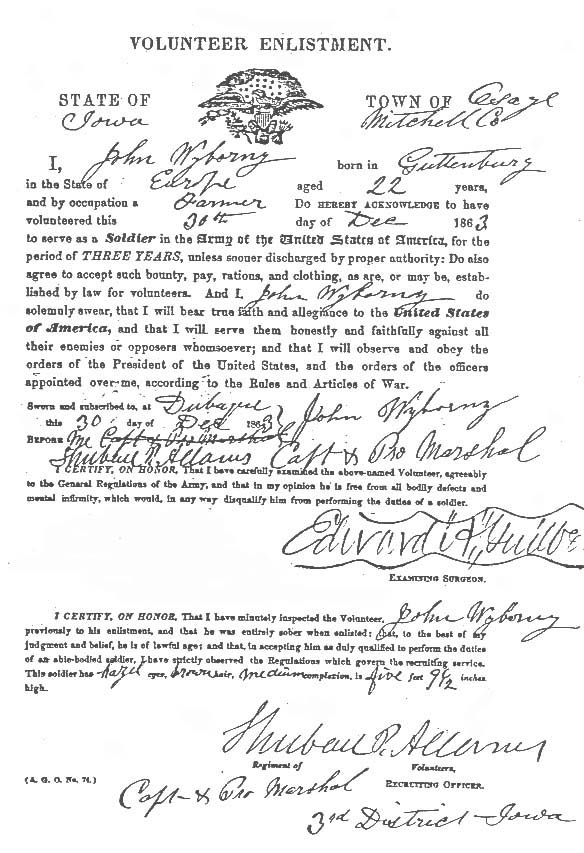 VOLUNTEER ENLISTMENT.
STATE OF TOWN OF Osage
Iowa Mitchell Co
I, John Wyborny born in Guttenburg
in the State of Europe aged 22 years,
and by occupation a Farmer Do HEREBY ACKNOWLEDGE to have
volunteered this 30th day of Dec 1863
to serve as a Soldier in the Army of the United States of America, for the
period of THREE YEARS, unless sooner discharged by proper authority: Do also
agree to accept such bounty, pay, rations, and clothing, as are, or may be, estab-
lished by law for volunteers. And I, John Wyborny do
solemnly swear, that I will bear true faith and allegiance to the United States
of America, and that I will serve them honestly and faithfully against all
their enemies or opposers whomsoever; and that I will observe and obey the
orders of the President of the United States, and the orders of the officers
appointed over me, according to the Rules and Articles of War.
Sworn and subscribed to, at Dubuque John Wyborny
this 30 day of Dec 1863
BEFORE Me Capt & Pro Marshal
Shubael P. Adams Capt & Pro Marshal
I CERTIFY, ON HONOR, That I have carefully examined the above-named Volunteer, agreeably
to the General Regulations of the Army, and that in my opinion he is free from all bodily defects and
mental infirmity, which would, in any way disqualify him from performing the duties of a soldier.
Edward
EXAMINING SURGEON.
I CERTIFY, ON HONOR, That I have minutely inspected the Volunteer, John Wyborny
previously to his enlistment, and that he was entirely sober when enlisted; that, to the best of my
judgment and belief, he is of lawful age; and that, in accepting him as duly qualified to perform the duties
of an able-bodied soldier, I have strictly observed the Regulations which govern the recruiting service.
This soldier has hazel eyes, brown hair, medium complexion, is five feet 9 1/2 inches
high.
Shubael P. Adams
Regiment of Volunteers,
(A. G. O. No. 74.) RECRUITING OFFICER.
Capt & Pro Marshal
3rd District Iowa